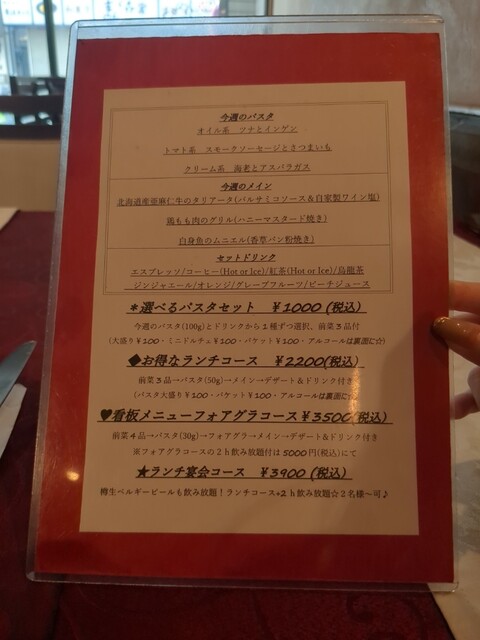 今週のパスタ
オイル系　ツナとインゲン
トマト系　スモークソーセージとさつまいも
クリーム系　海老とアスパラガス
今週のメイン
北海道産亜麻仁牛のタリアータ(バルサミコソース＆自家製ワイン塩)
鶏もも肉のグリル(ハニーマスタード焼き)
白身魚のムニエル(香草パン粉焼き)
セットドリンク
エスプレッソ/コーヒー(Hot or Ice)/紅茶(Hot or Ice)/烏龍茶
ジンジャエール/オレンジ/グレープフルーツ/ピーチジュース
＊選べるパスタセット　￥1000 (税込)
今週のパスタ(100g)とドリンクから１種ずつ選択、前菜３品付
(大盛り￥100・ミニドルチェ￥100・バケット￥100・アルコールは裏面に☆)
◆お得なランチコース　￥2200(税込)
前菜３品→パスタ(50g)→メイン→デザート＆ドリンク付き
(パスタ大盛り￥100・バケット￥100・アルコールは裏面に☆)
♥看板メニューフォアグラコース￥3500(税込)
前菜４品→パスタ(30g)→フォアグラ→メイン→デザート&ドリンク付き
※フォアグラコースの２ｈ飲み放題付は5000円(税込)にて
★ランチ宴会コース　￥3900 (税込)
樽生ベルギービールも飲み放題！ランチコース+2ｈ飲み放題☆２名様～可♪